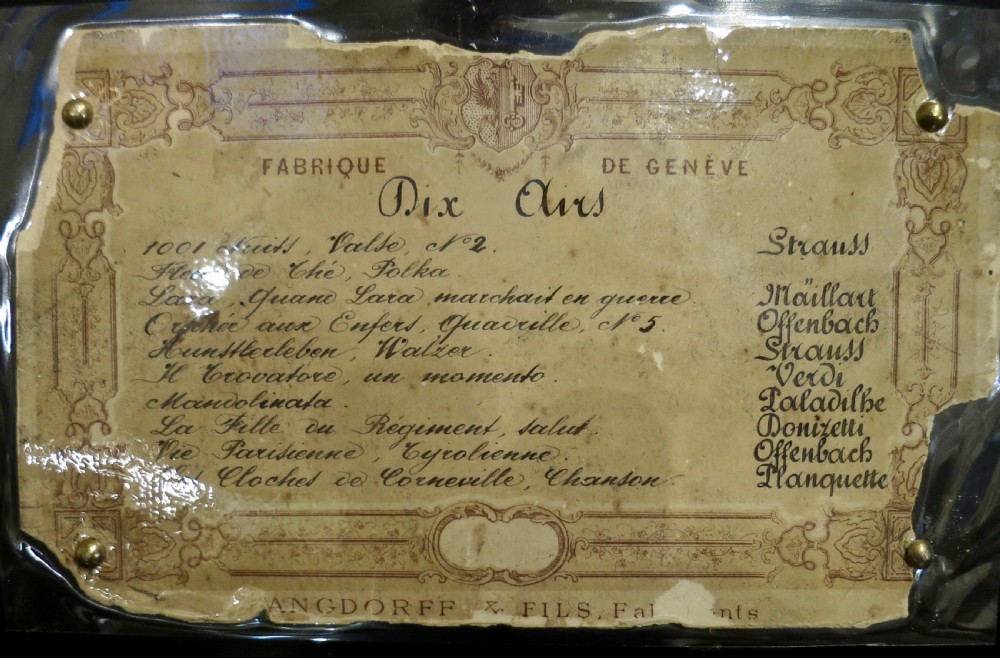 FABRIQUE DE GENÈVE
Dix Airs
1001 Nuits, Valse, Nº 2. Strauss
de Thé, Polka.
Lara, Quand Lara marchait en guerre Mäillart
Orphée aux Enfers, Quadrille, Nº 5. Offenbach
Kunstlerleben, Walzer. Strauss
Il Trovatore, un momento. Verdi
Mandolinata. Paladilhe
La Fille du Régiment, salut. Donizetti
Vie Parisienne, Tyrolienne. Offenbach
Cloches de Corneville, Chanson. Planquette
ANGDORFF & FILS, Fa nts